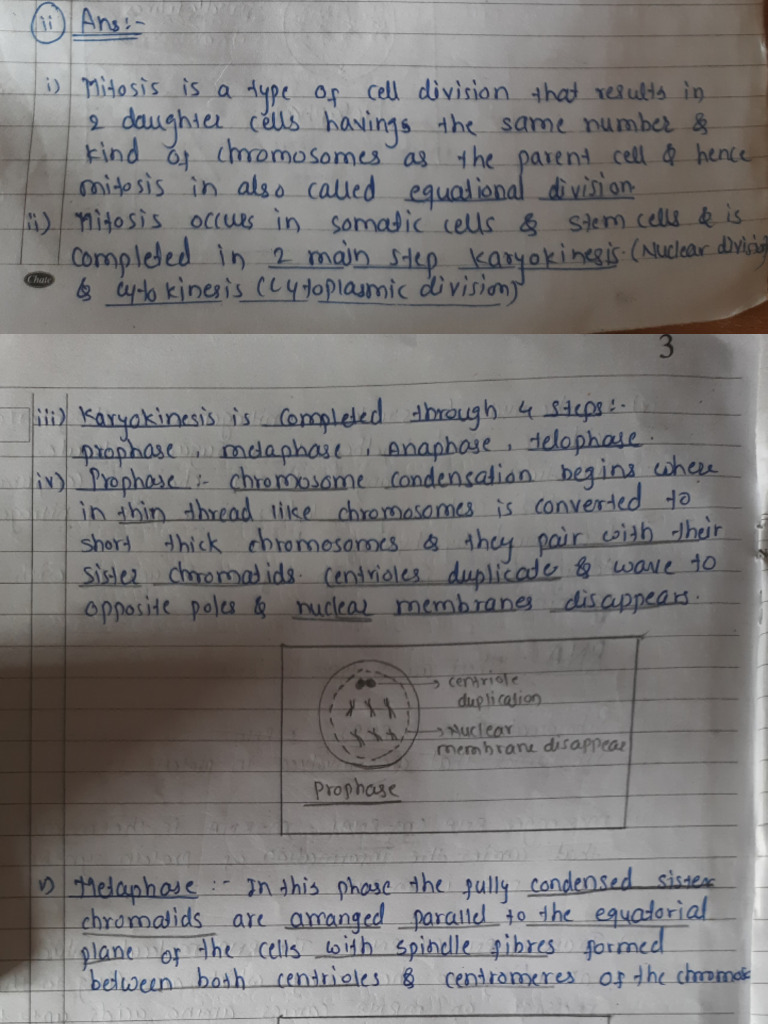 ii Ans:-
i) Mitosis is a type of cell division that results in
2 daughter cells havings the same number &
kind of chromosomes as the parent cell & hence
mitosis in also called equational division
ii) Mitosis occurs in somatic cells & stem cells & is
completed in 2 main step karyokinesis. (Nuclear divisi
& cytokinesis (cytoplasmic division)
Chate
3
iii) Karyokinesis is completed through 4 steps:-
prophase, metaphase, Anaphase, telophase.
iv) Prophase :- chromosome condensation begins where
in thin thread like chromosomes is converted to
short thick chromosomes & they pair with their
sister chromatids. centrioles duplicate & wave to
opposite poles & nuclear membranes disappears.
→ centriole
duplication
→ Nuclear
membrane disappear
Prophase
v) Metaphase :- In this phase the fully condensed sister
chromatids are arranged parallel to the equatorial
plane of the cells with spindle fibres formed
between both centrioles & centromeres of the chromos